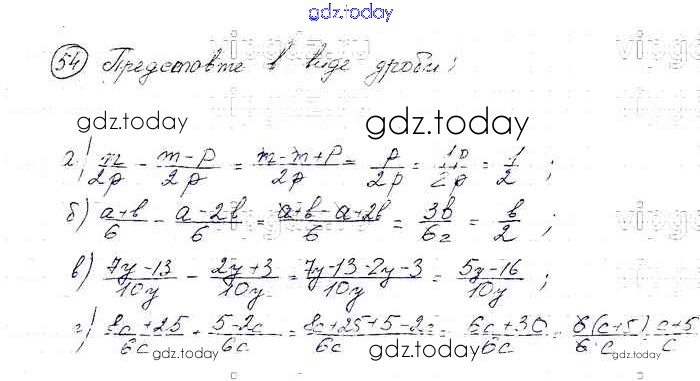 gdz.today
54 Представте в виде дроби:
gdz.today gdz.today
а) m/2p - (m-p)/2p = (m-m+p)/2p = p/2p = 1p/2p = 1/2 ;
б) (a+b)/6 - (a-2b)/6 = (a+b-a+2b)/6 = 3b/6₂ = b/2 ;
в) (7y-13)/10y - (2y+3)/10y = (7y-13-2y-3)/10y = (5y-16)/10y ;
г) (8c+25)/6c + (5-2c)/6c = (8c+25+5-2c)/6c = (6c+30)/6c = 6(c+5)/6·c = (c+5)/c
gdz.today gdz.today